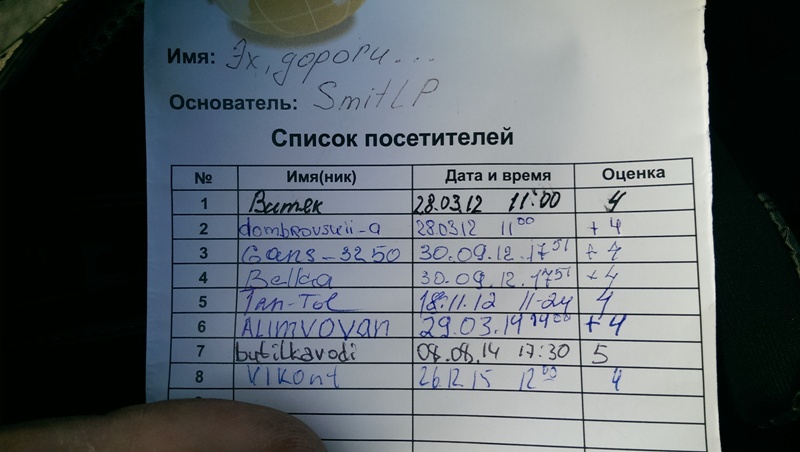 Имя: Эх, дороги...
Основатель: SmitLP
Список посетителей
№ Имя(ник) Дата и время Оценка
1 Витек 28.03.12 11:00 4
2 dombrovskii-a 280312 11 00 +4
3 Gans-3250 30.09.12. 17 51 +4
4 Belka 30.09.12. 17 51 +4
5 Tan-Tol 18.11.12 11-24 4
6 ALIMVOVAN 29.03.14 14 00 +4
7 bybilkavodi 08.08.14 17:30 5
8 VIKont 26.12.15 12 00 4